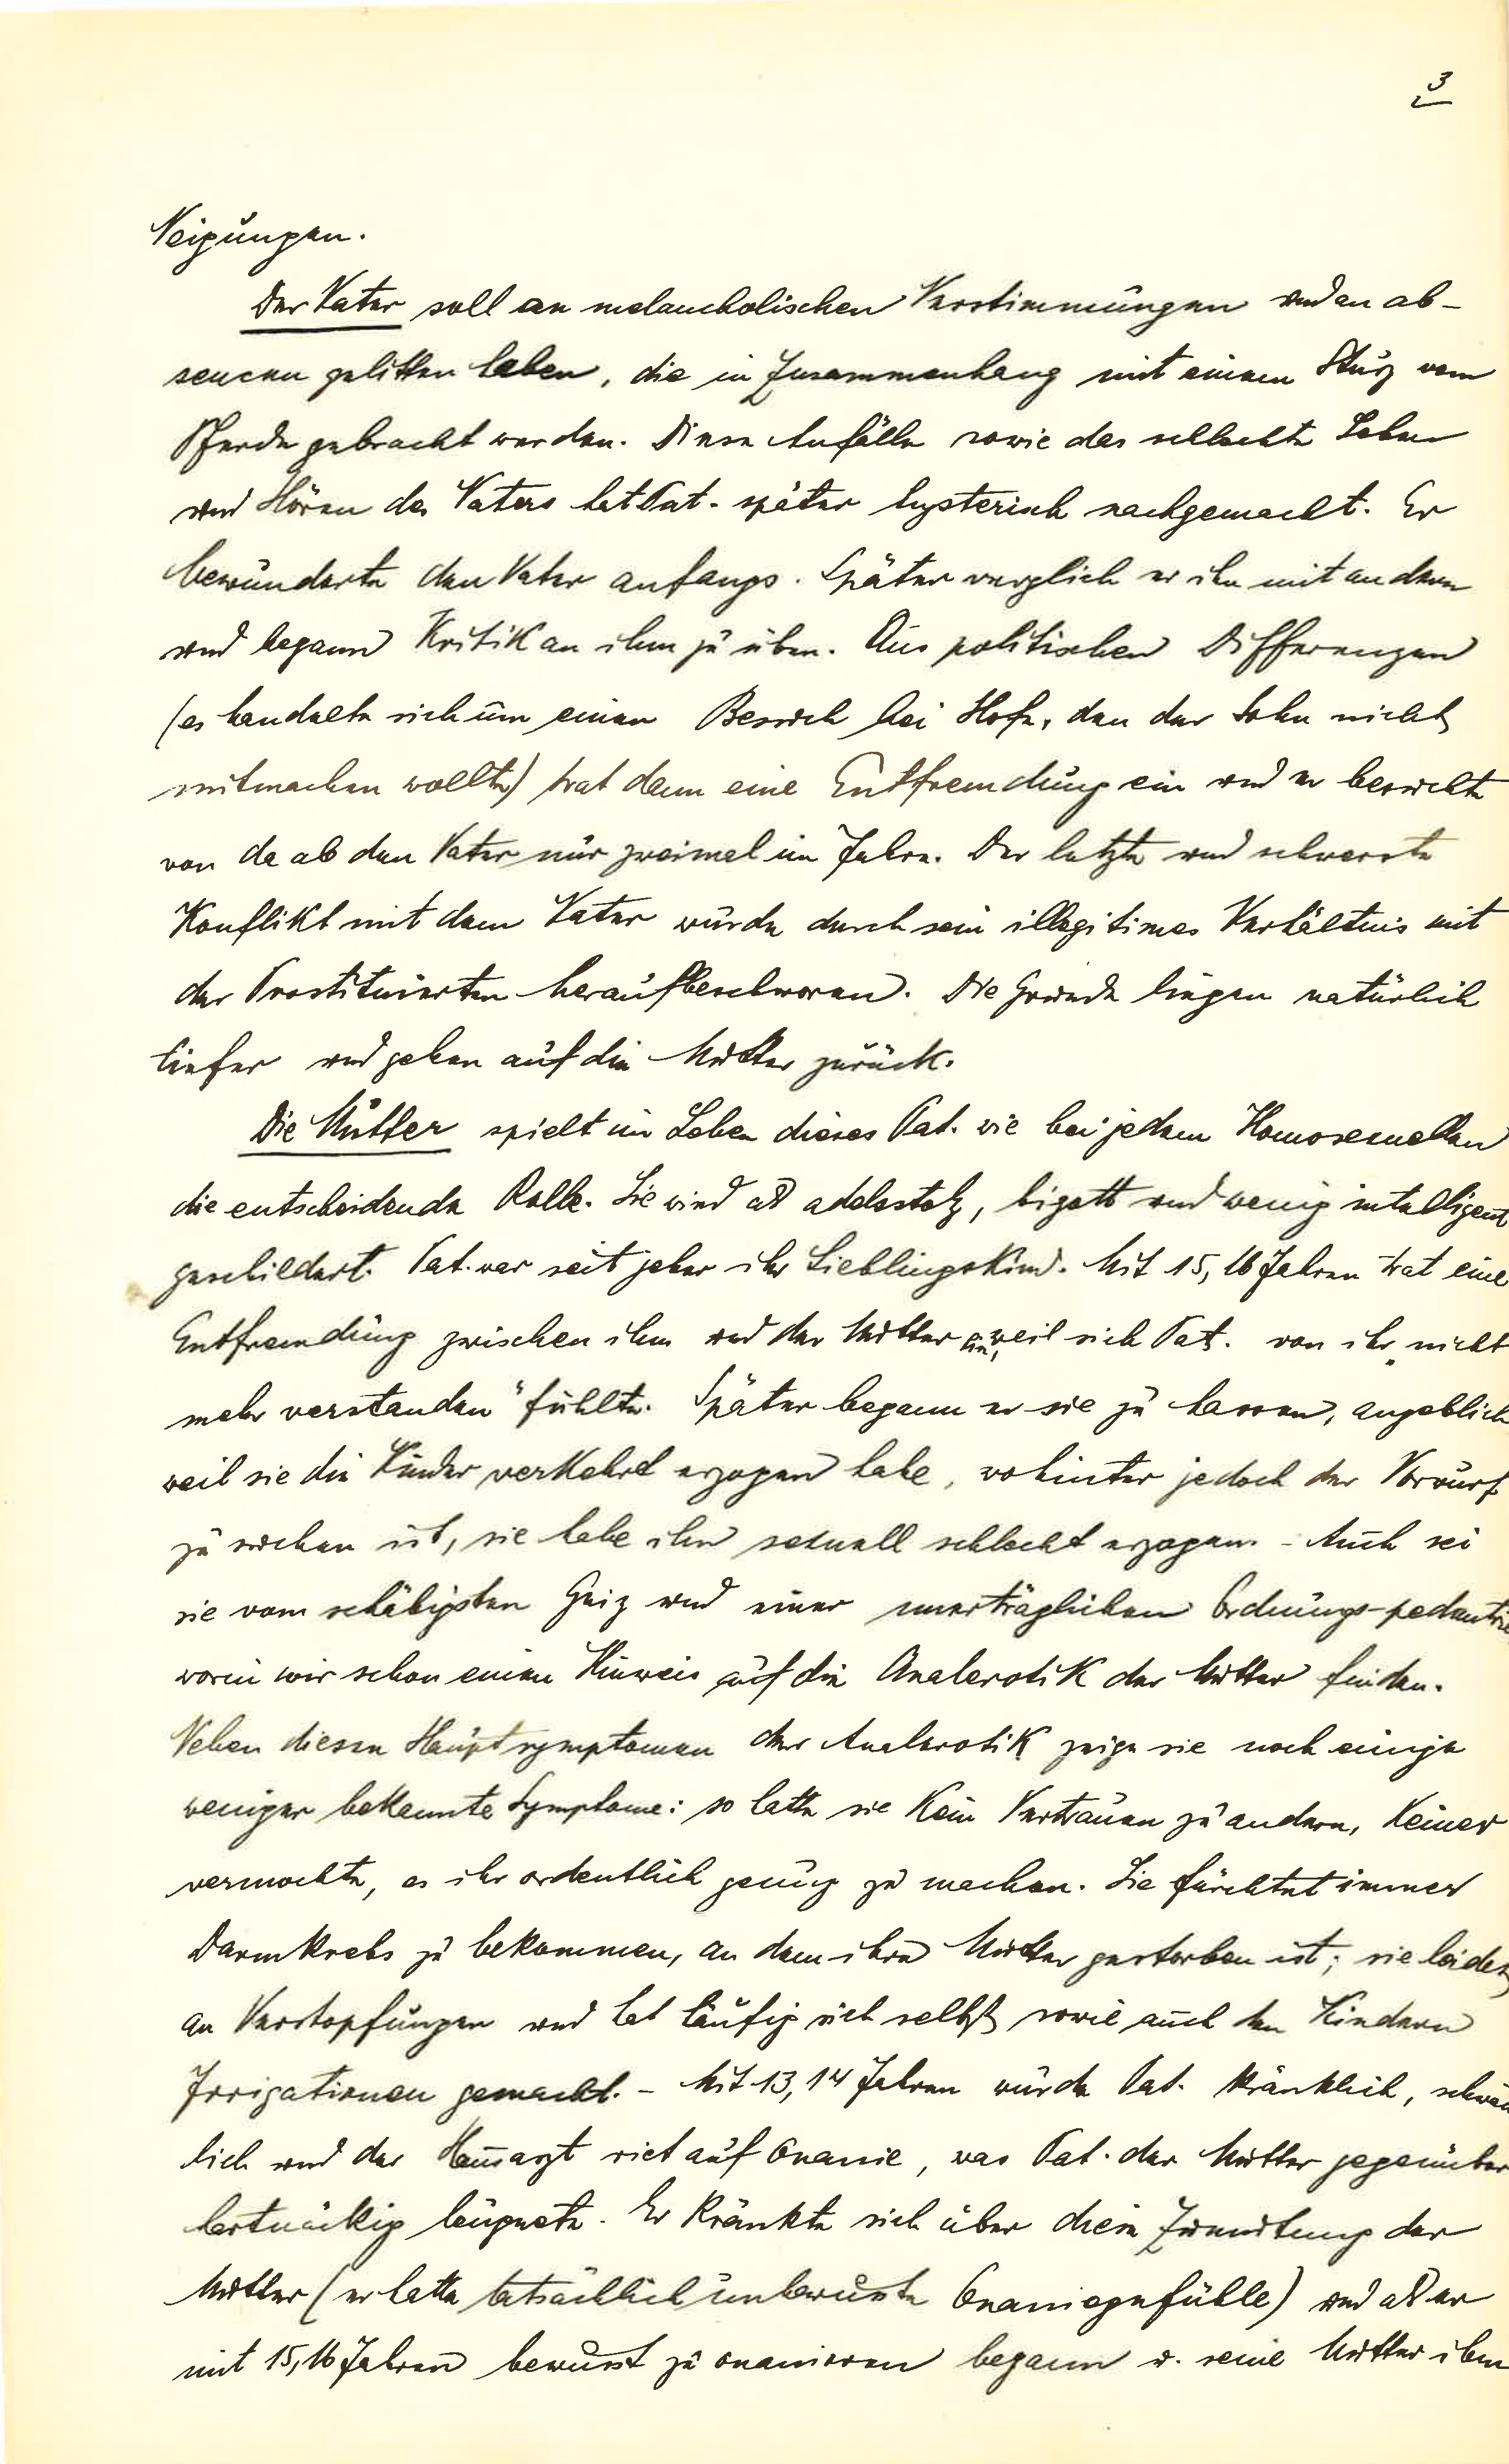 3
Neigungen.
Der Vater soll an melancholischen Verstimmungen und an ab-
sencen gelitten haben, die in Zusammenhang mit einem Sturz vom
Pferde gebracht werden. Diese Anfälle sowie das schlechte Sehen
und Hören des Vaters hat Pat. später hysterisch nachgemacht. Er
bewunderte den Vater anfangs. Später verglich er ihn mit andern
und begann Kritik an ihm zu üben. Aus politischen Differenzen
(es handelte sich um einen Besuch bei Hofe, den der Sohn nicht
mitmachen wollte) trat dann eine Entfremdung ein und er besuchte
von da ab den Vater nur zweimal im Jahre. Der letzte und schwerste
Konflikt mit dem Vater wurde durch sein illegitimes Verhältnis mit
der Prostituierten heraufbeschworen. Die Gründe liegen natürlich
tiefer und gehen auf die Mutter zurück.
Die Mutter spielt im Leben dieses Pat. wie bei jedem Homosexuellen
die entscheidende Rolle. Sie wird als adelsstolz, bigott und wenig intelligent
geschildert. Pat. war seit jeher ihr Lieblingskind. Mit 15, 16 Jahren trat eine
Entfremdung zwischen ihm und der Mutter ein, weil sich Pat. von ihr „nicht
mehr verstanden“ fühlte. Später begann er sie zu hassen, angeblich
weil sie die Kinder verkehrt erzogen habe, wohinter jedoch der Vorwurf
zu suchen ist, sie habe ihn sexuell schlecht erzogen. - Auch sei
sie vom schäbigsten Geiz und einer unerträglichen Ordnungs-pedantrie
worin wir schon einen Hinweis auf die Analerotik der Mutter finden.
Neben diesen Hauptsymptomen der Analerotik zeige sie noch einige
weniger bekannte Symptome: so hatte sie kein Vertrauen zu andern, keiner
vermochte, es ihr ordentlich genug zu machen. Sie fürchtet immer
Darmkrebs zu bekommen, an dem ihre Mutter gestorben ist; sie leidet
an Verstopfungen und hat häufig sich selbst sowie auch den Kindern
Irrigationen gemacht. - Mit 13, 14 Jahren wurde Pat. kränklich, schwäch
lich und der Hausarzt riet auf Onanie, was Pat. der Mutter gegenüber
hartnäckig leugnete. Er kränkte sich über diese Zumutung der
Mutter (er hatte tatsächlich unbewusste Onaniegefühle) und als er
mit 15, 16 Jahren bewusst zu onanieren begann u. seine Mutter ihm